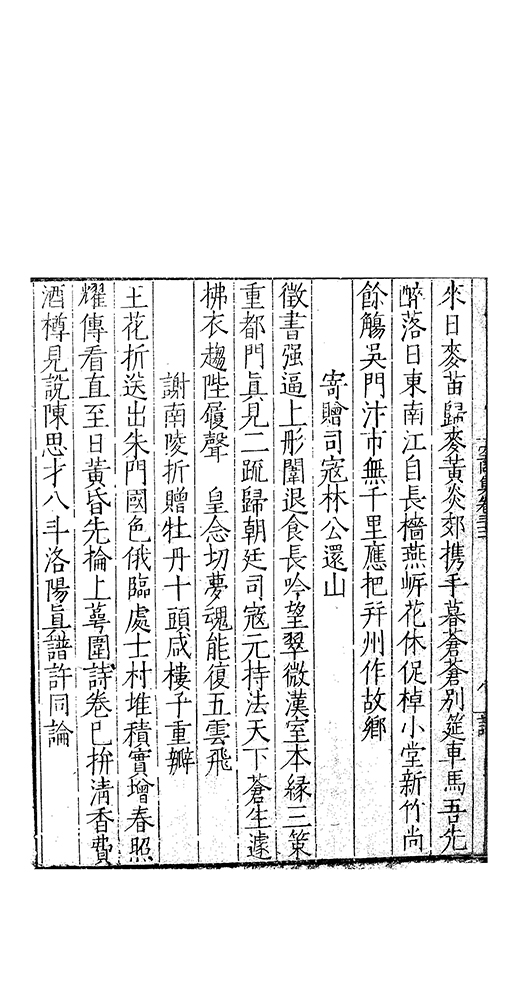 來日麥苗歸麥黃炎郊携手暮蒼蒼別筵車馬吾先
醉落日東南江自長檣燕岸花休促棹小堂新竹尚
餘觴吳門汴市無千里應把幷州作故鄉
寄贈司寇林公還山
徵書强逼上彤闈退食長吟望翠微漢室本緣三策
重都門眞見二疏歸朝廷司寇元持法天下蒼生遽
拂衣趨陛履聲　皇念切夢魂能復五雲飛
謝南陵折贈牡丹十頭咸樓子重瓣
王花折送出朱門國色俄臨處士村堆積實增春照
耀傳看直至日黃昏先掄上萼圍詩卷已拚淸香費
酒樽見說陳思才八斗洛陽眞譜許同論